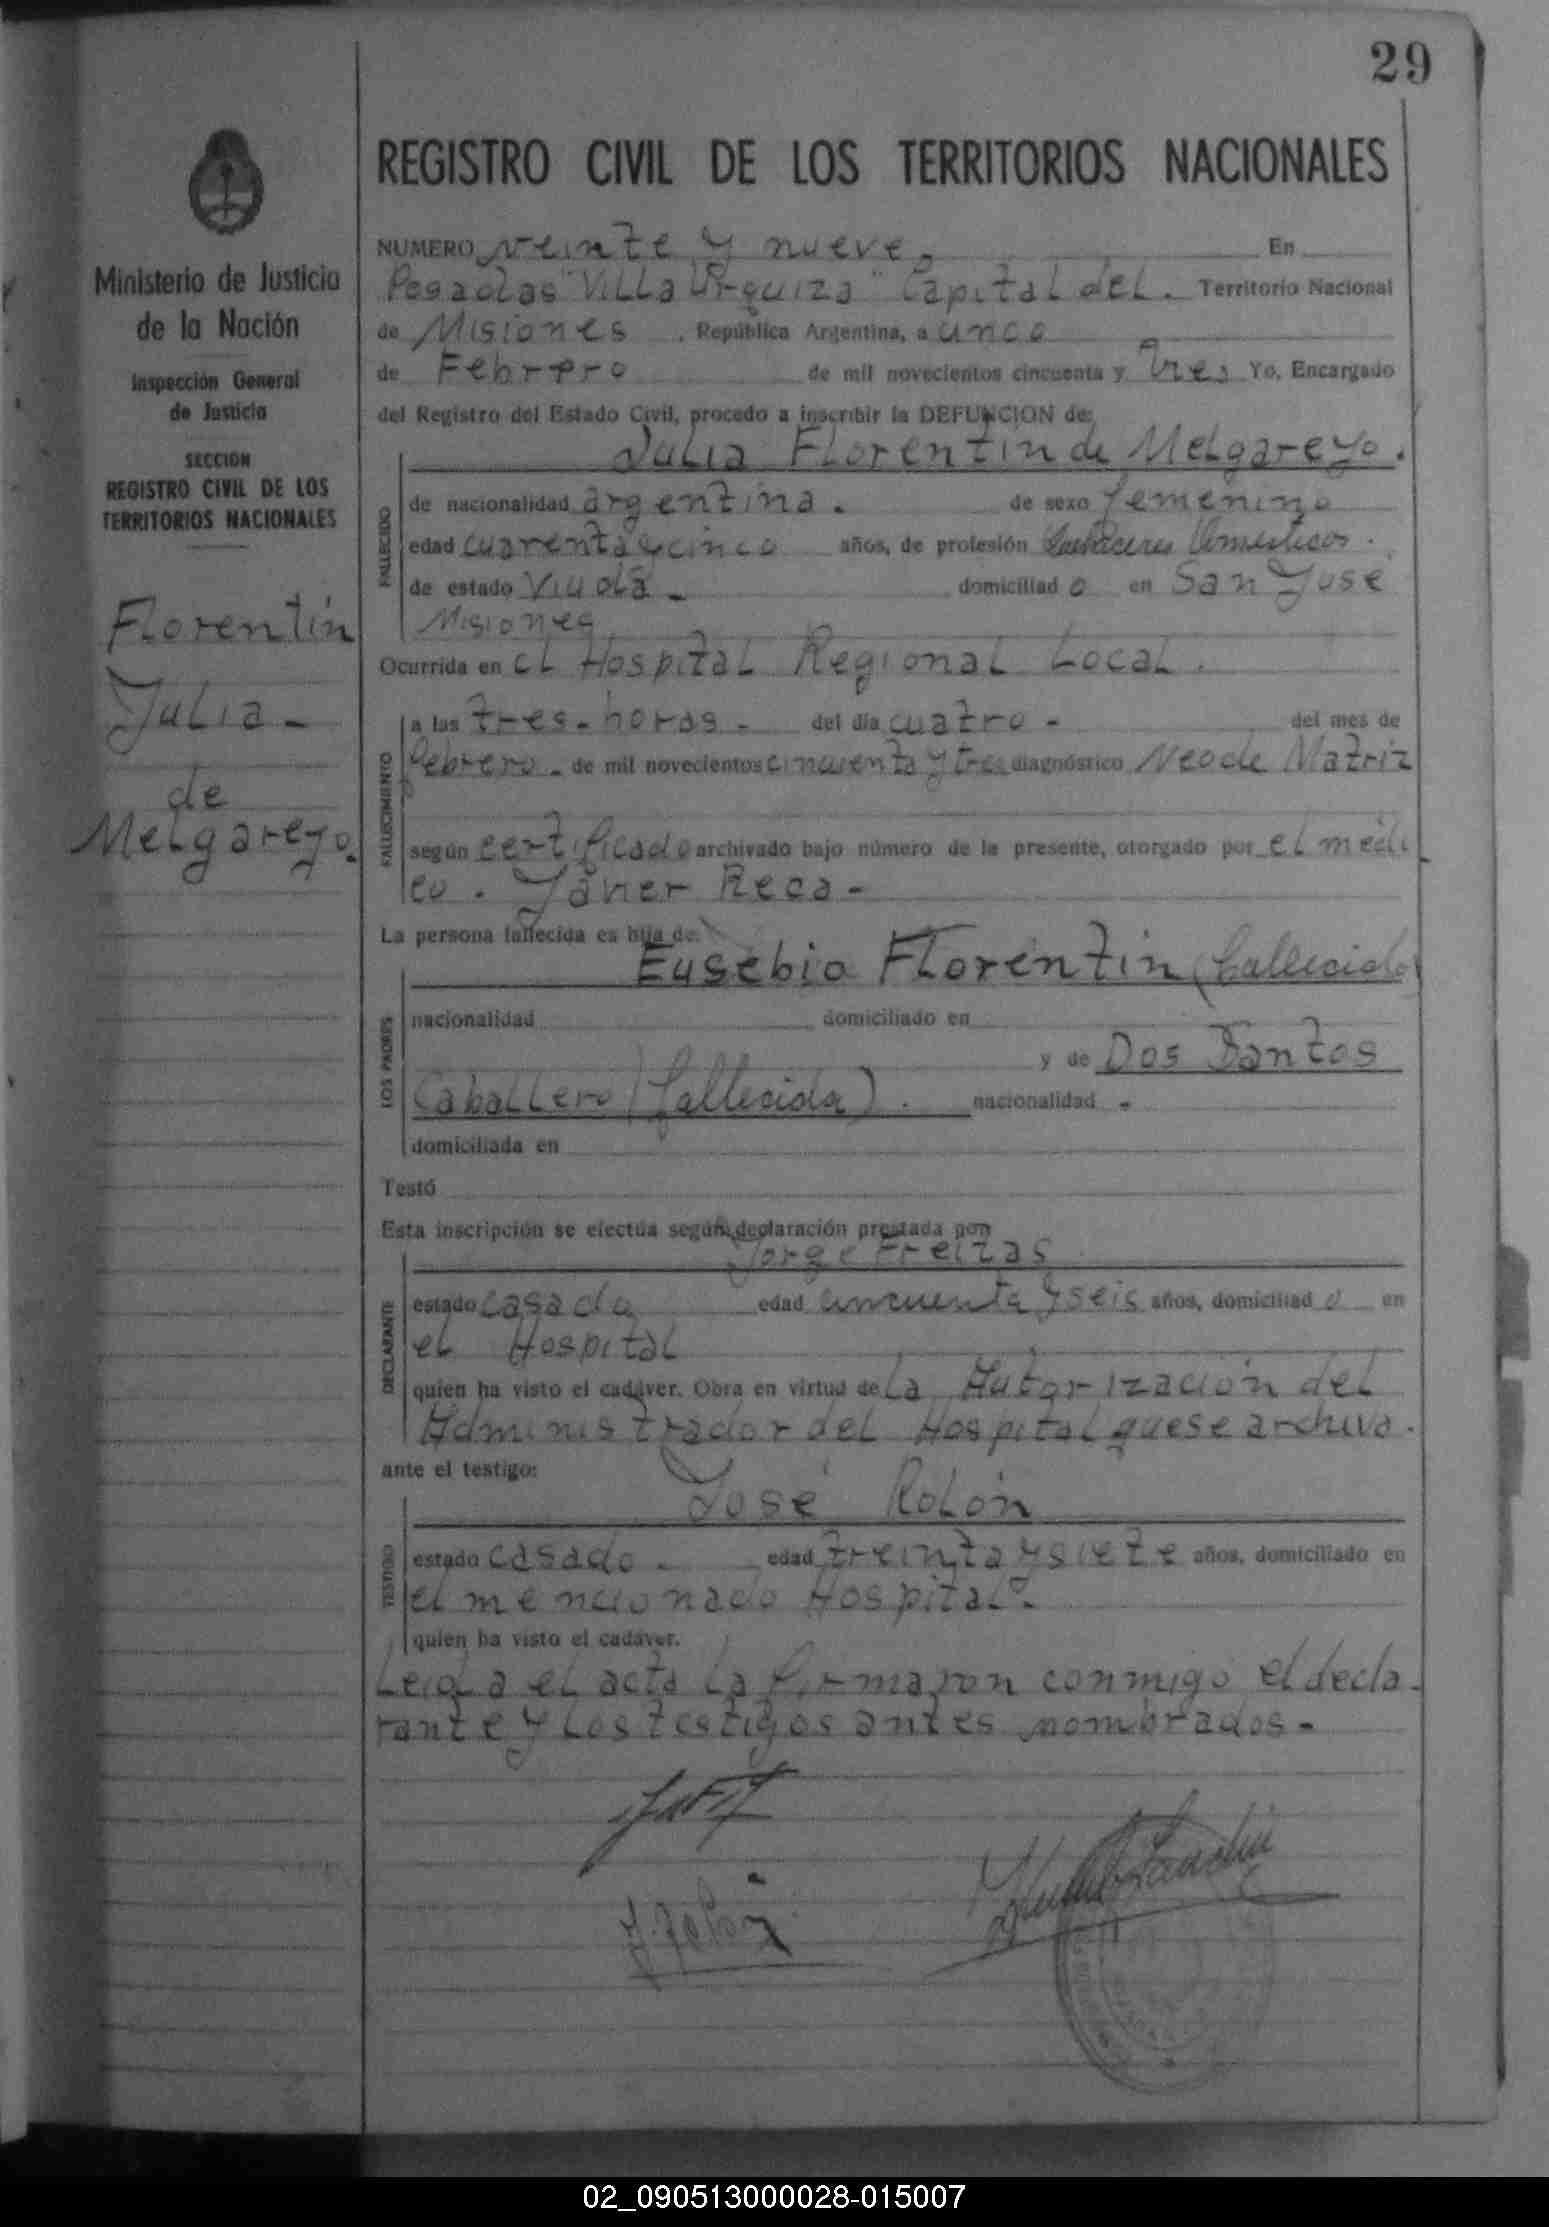 29
REGISTRO CIVIL DE LOS TERRITORIOS NACIONALES
Ministerio de Justicia
de la Nación
Inspección General
de Justicia
SECCION
REGISTRO CIVIL DE LOS
TERRITORIOS NACIONALES
Florentín
Julia -
de
Melgareyo.
NUMERO veinte y nueve. En
Posadas "Villa Urquiza" Capital del. Territorio Nacional
de Misiones . República Argentina, a cinco
de Febrero de mil novecientos cincuenta y tres Yo, Encargado
del Registro del Estado Civil, procedo a inscribir la DEFUNCION de:
Julia Florentin de Melgareyo.
FALLECIDO
de nacionalidad argentina. de sexo femenino
edad cuarenta y cinco años, de profesión Quehaceres Domésticos.
de estado Viuda - domiciliado en San José
Misiones
Ocurrida en el Hospital Regional Local.
FALLECIMIENTO
a las tres-horas - del día cuatro - del mes de
febrero - de mil novecientos cincuenta y tres diagnóstico Neo de Matriz
según certificado archivado bajo número de la presente, otorgado por el médi
co. Janer Reca -
La persona fallecida es hija de:
LOS PADRES
Eusebio Florentin (fallecido)
nacionalidad domiciliado en
y de Dos Santos
Caballero (fallecida). nacionalidad -
domiciliada en
Testó
Esta inscripción se efectúa según declaración prestada por
DECLARANTE
Jorge Freitas
estado casado edad cincuenta y seis años, domiciliado en
el Hospital
quien ha visto el cadáver. Obra en virtud de la Autorización del
Administrador del Hospital que se archiva.
ante el testigo:
TESTIGO
José Rolón
estado casado. edad treinta y siete años, domiciliado en
el mencionado Hospital.
quien ha visto el cadáver.
Leida el acta la firmaron conmigo el decla-
rante y los testigos antes nombrados -
02_090513000028-015007